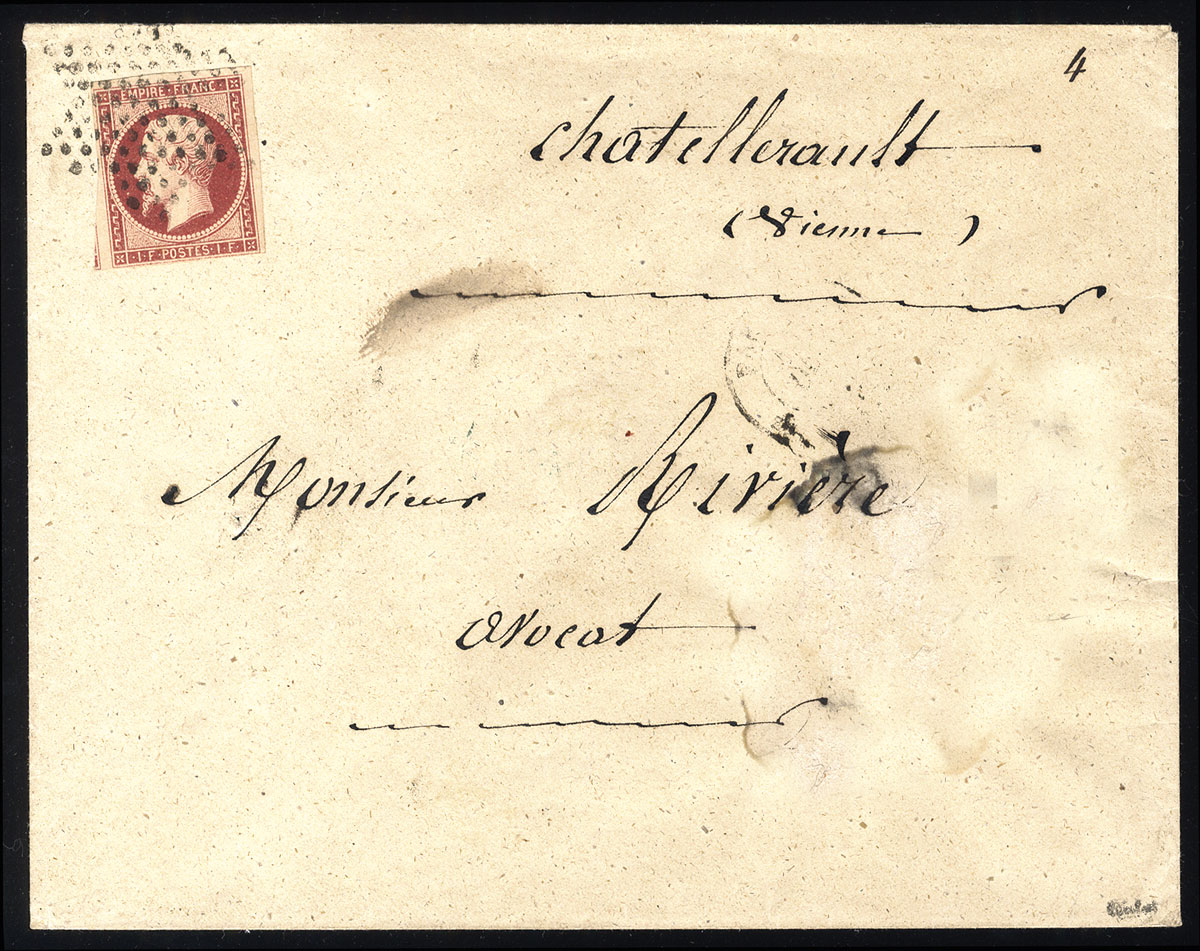 4
EMPIRE · FRANC ·
· 1 · F · POSTES · 1 · F ·
Chatellerault
(Vienne)
Monsieur Rivière
avocat